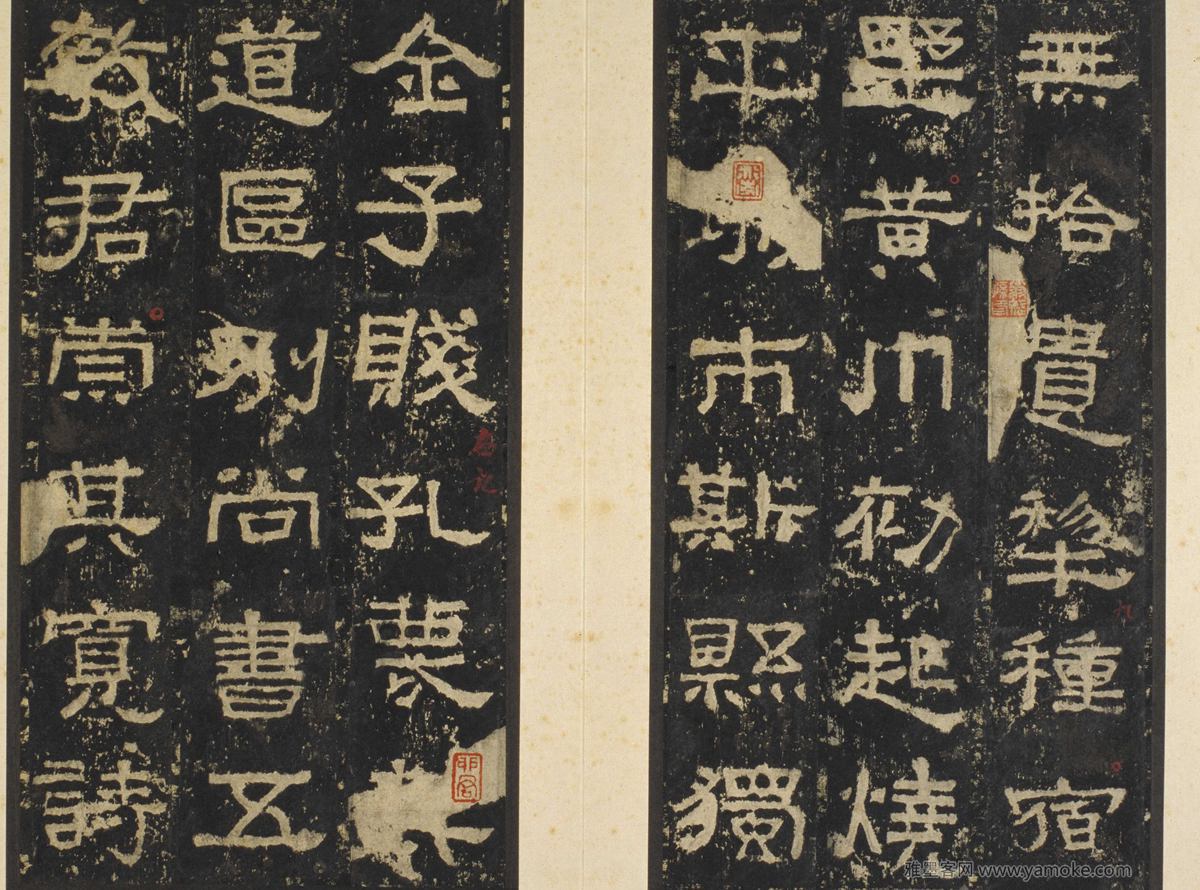 無拾遺犂種宿
壄黃巾初起燒
平市斯縣獨
金子賤孔蔑
道區別尚書五
教君崇其寬詩
九
雅墨客网 www.yamoke.com